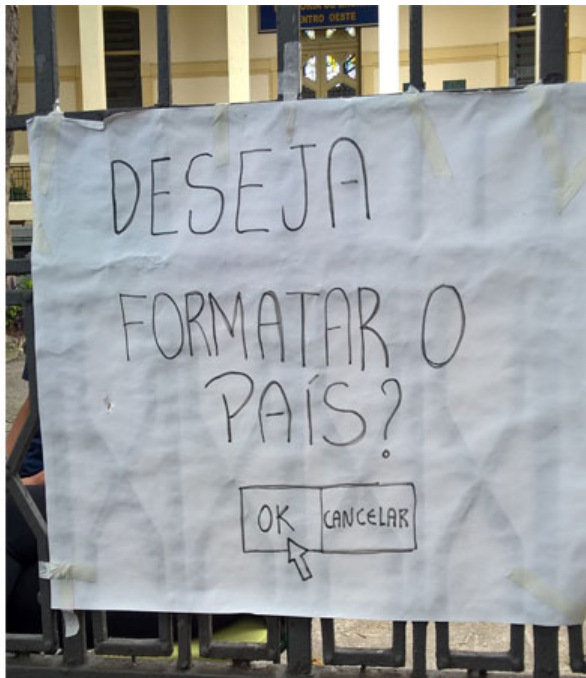 CENTRO OESTE
DESEJA
FORMATAR O
PAÍS?
OK CANCELAR